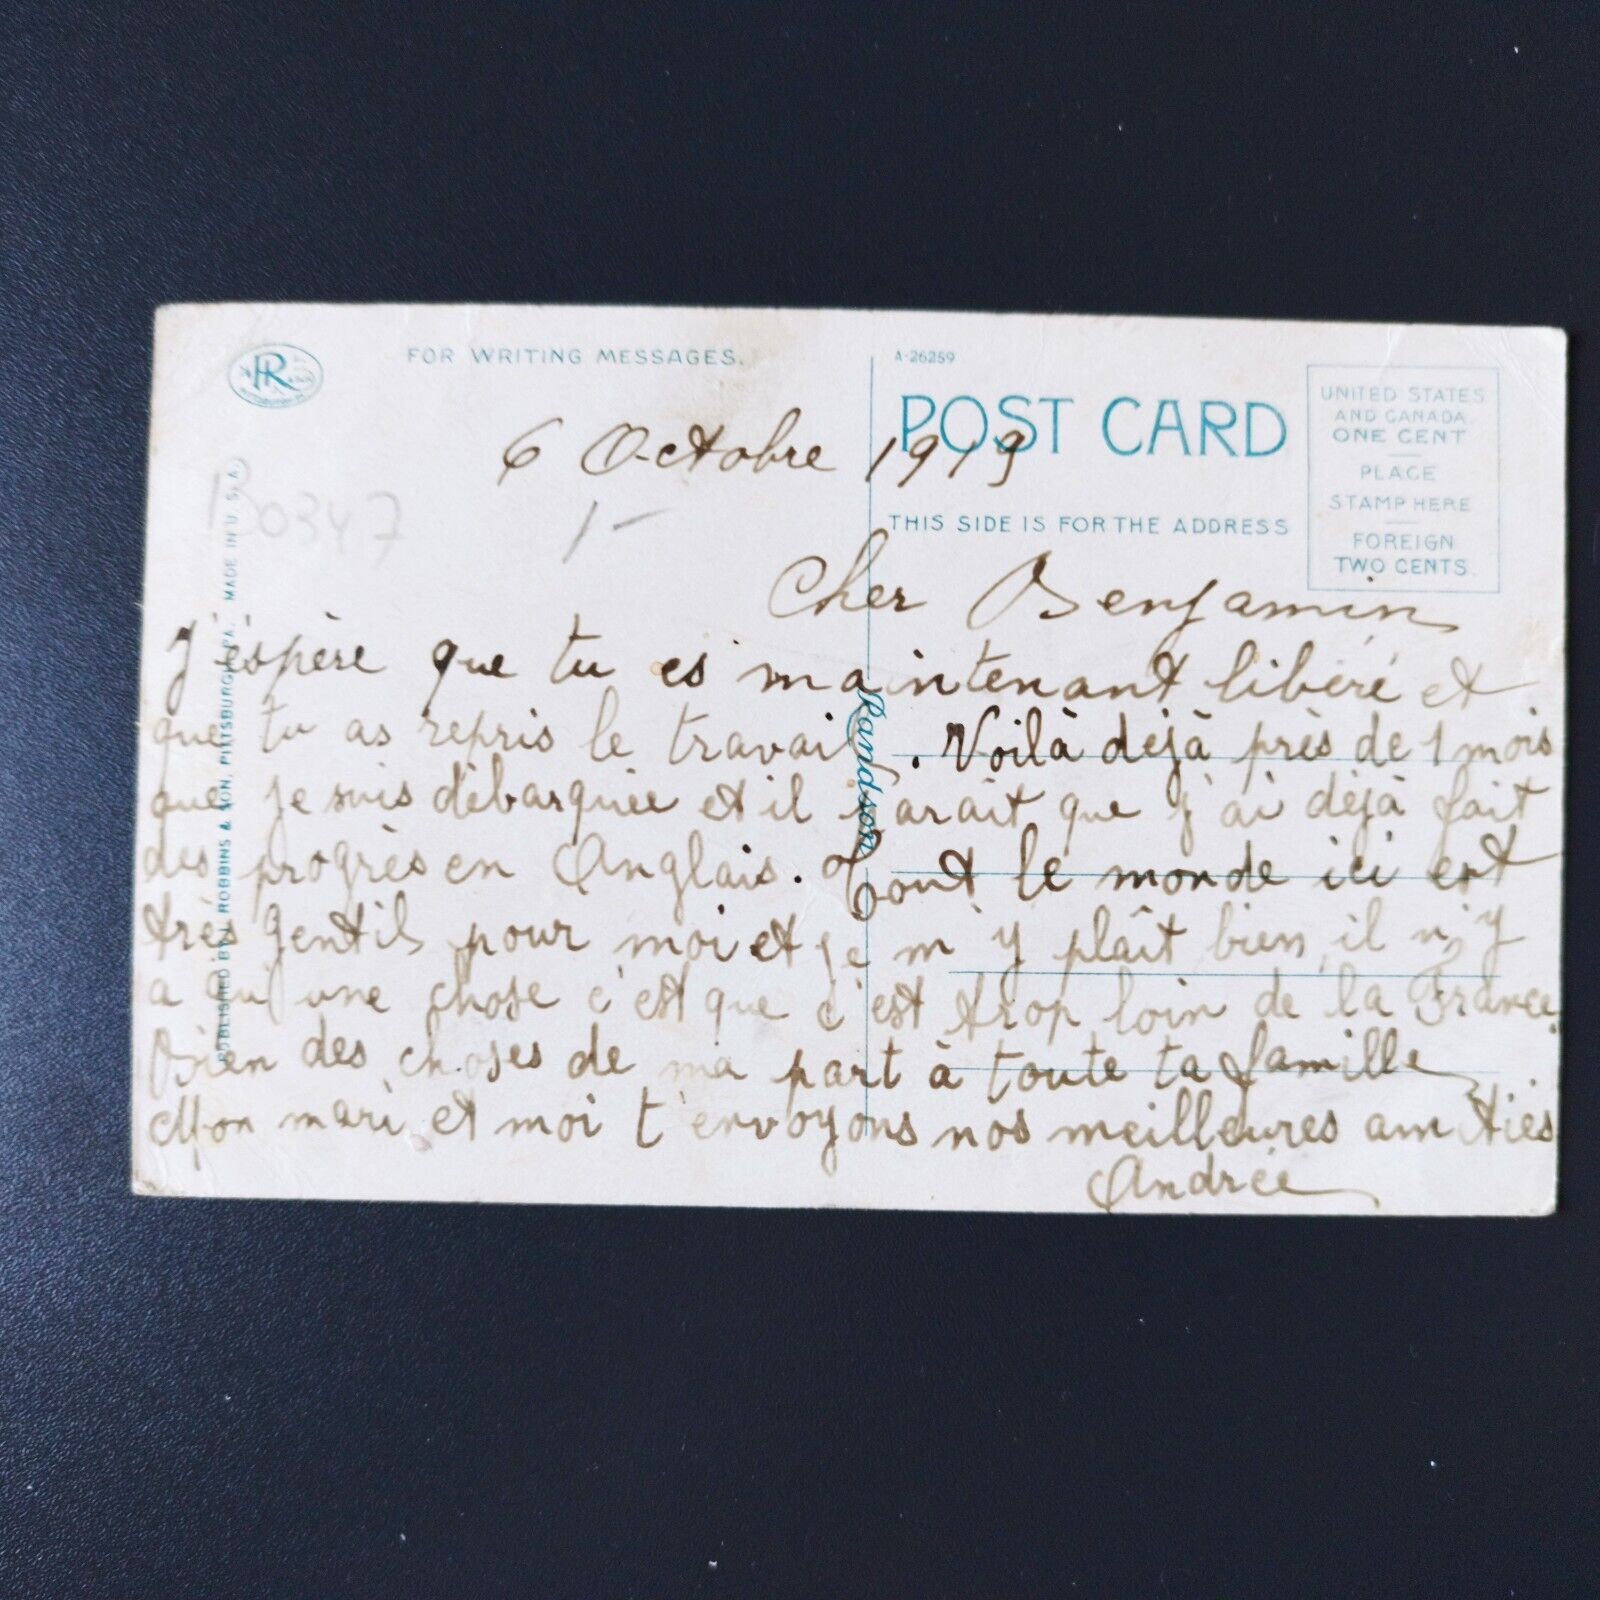 FOR WRITING MESSAGES.
A-26259
POST CARD
UNITED STATES
AND CANADA
ONE CENT
PLACE
STAMP HERE
FOREIGN
TWO CENTS.
THIS SIDE IS FOR THE ADDRESS
HR
PUBLISHED BY I. ROBBINS & SON, PITTSBURGH, PA. MADE IN U.S.A.
Randson
B0347
1-
6 Octobre 1919
Cher Benjamin
J'éspère que tu es maintenant libéré et
que tu as repris le travail. Voilà déjà près de 1 mois
que je suis débarquée et il parait que j'ai déjà fait
des progrès en Anglais. Tout le monde ici est
très gentil pour moi et je m'y plaît bien, il n'y
a qu'une chose c'est que c'est trop loin de la France.
Bien des choses de ma part à toute ta famille
Mon mari et moi t'envoyons nos meilleures amitiés
Andrée